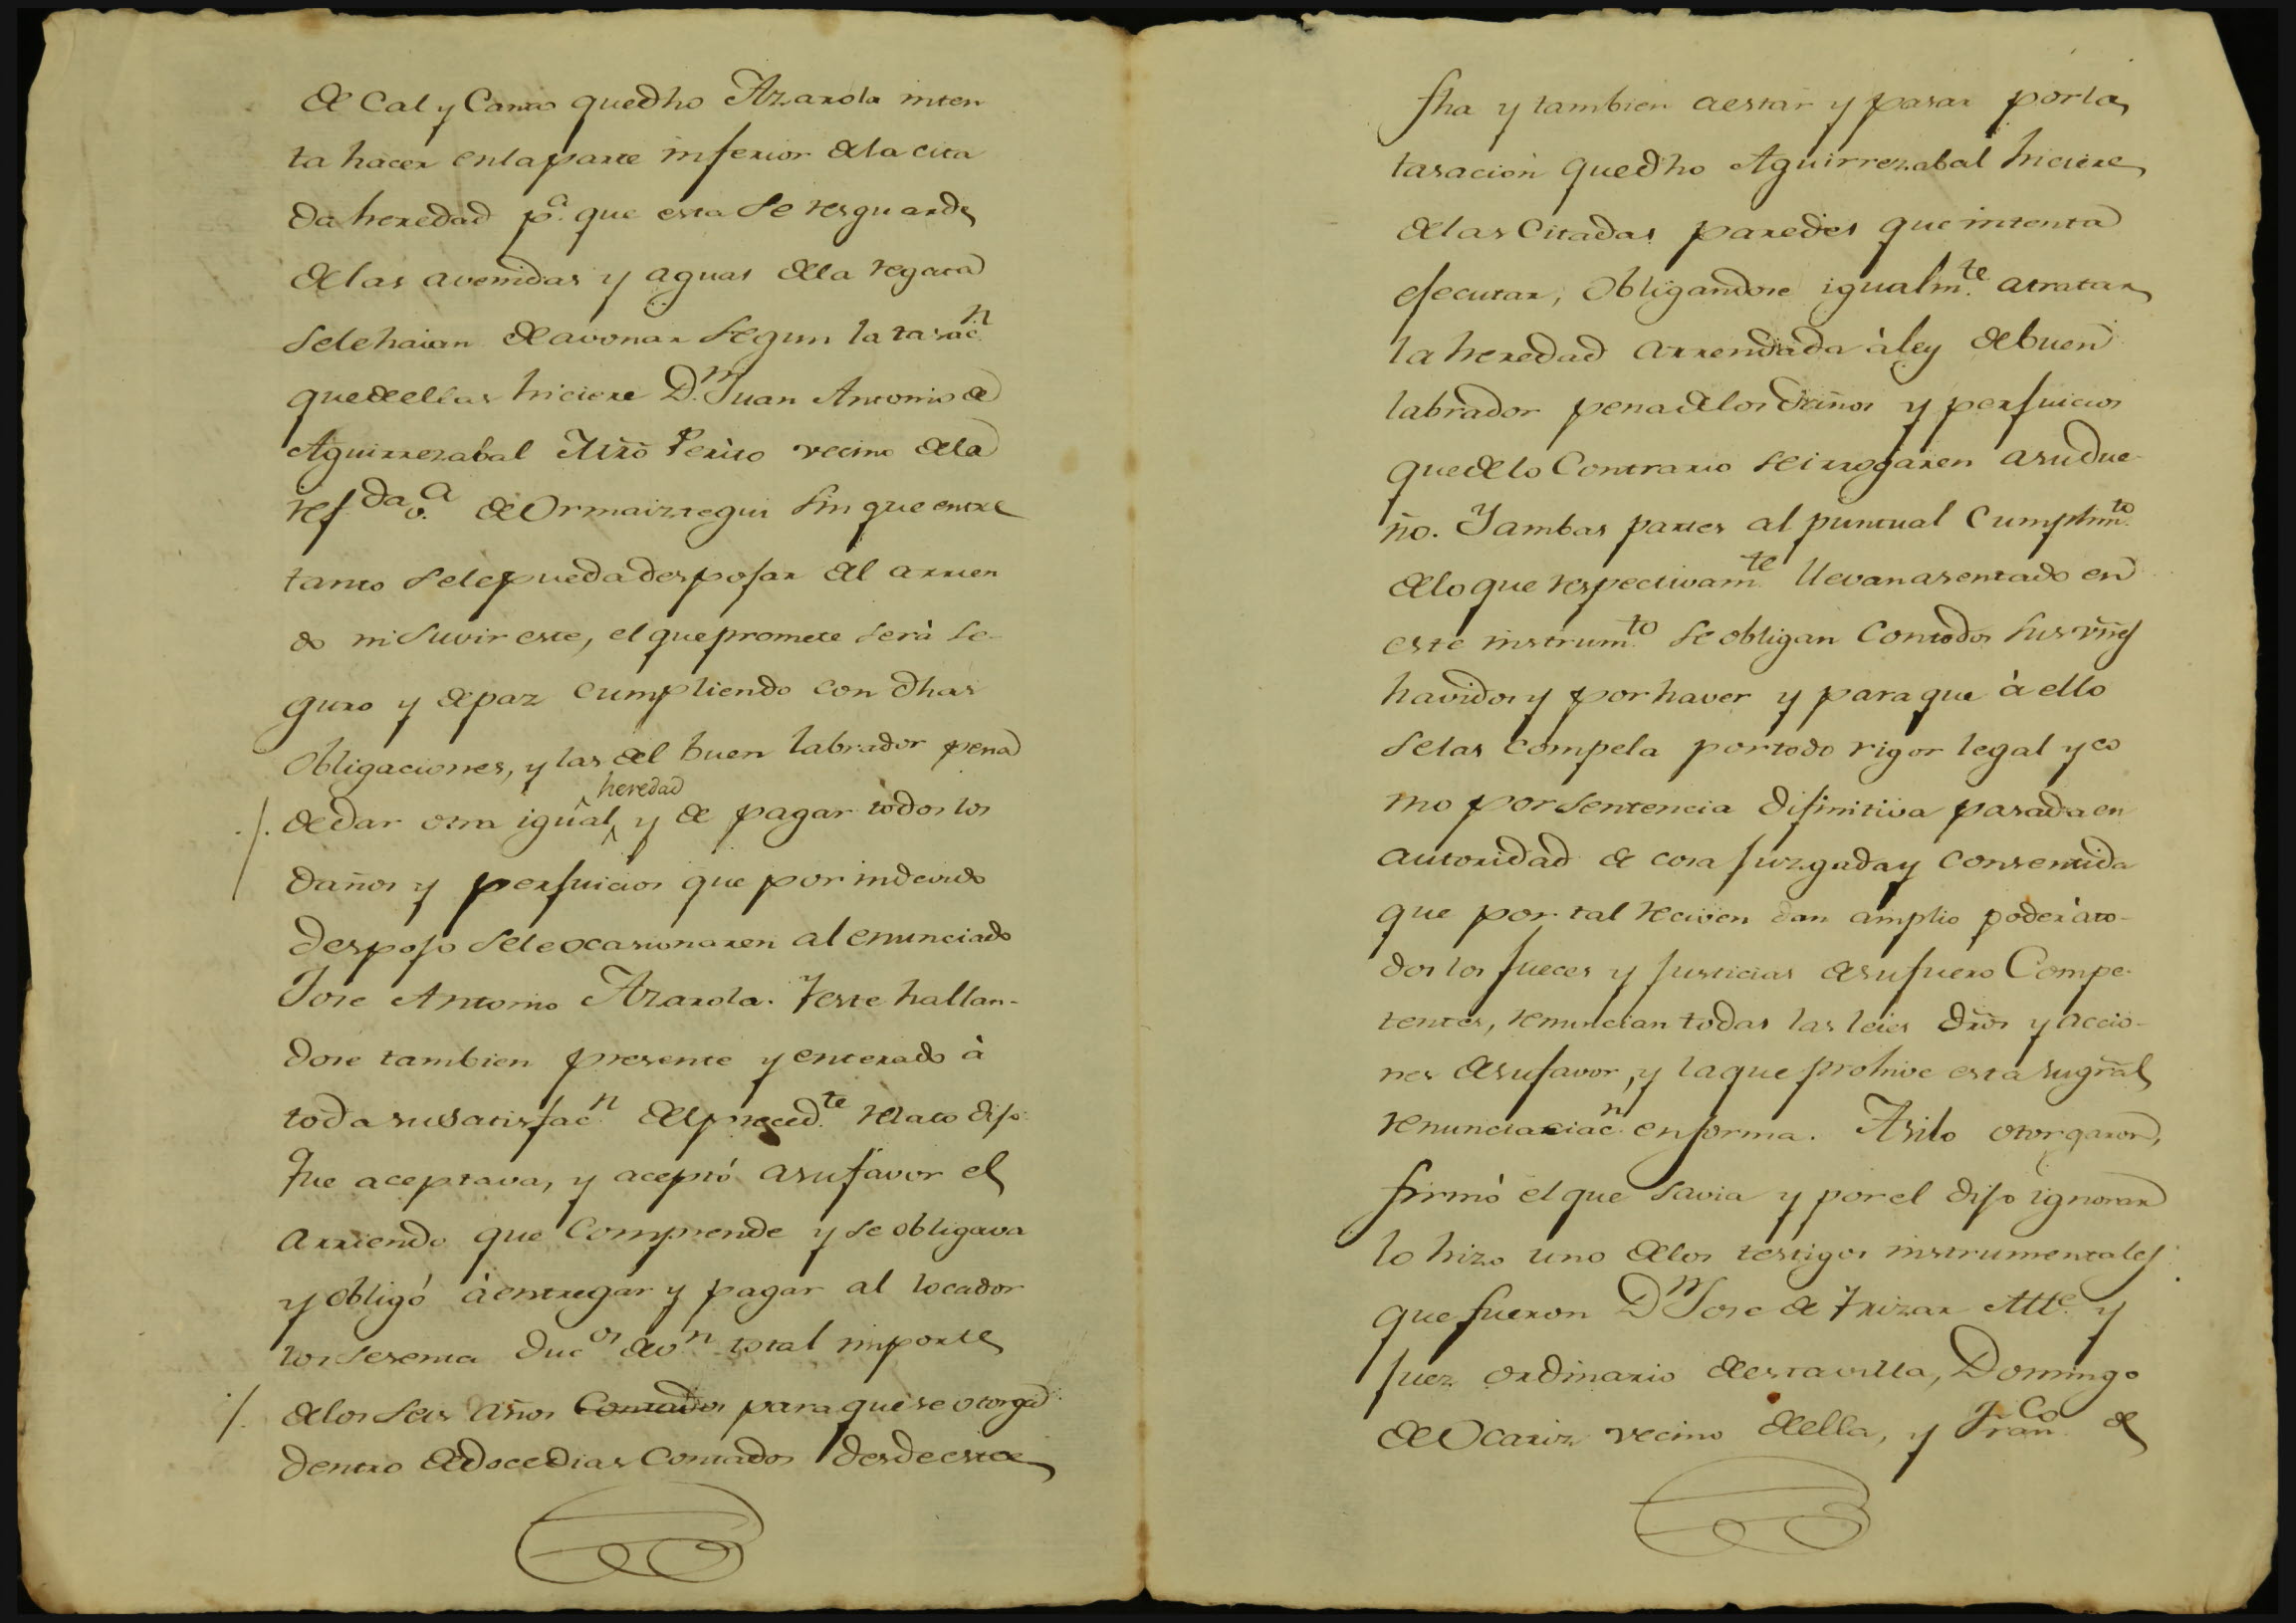 de Cal y Canto que dho Azarola inten
ta hacer en la parte inferior de la cita
da heredad pª. que esta se resguarde
de las avenidas y aguas de la regata
se le haian de avonar segun la tasacⁿ.
que de ellas hiciere Dⁿ. Juan Antonio de
Aguirrezabal Mrõ Perito vecino de la
refda vª. de Ormaiztegui sin que entre
tanto se le pueda despojar del arrien
do ni suvir este, el que promete será se-
guro y de paz cumpliendo con dhas
Obligaciones, y las del buen labrador pena
./. de dar otra igual ^heredad y de pagar todos los
daños y perjuicios que por indevido
despojo se le ocasionaren al enunciado
Jose Antonio Azarola. Y este hallan-
dose tambien presente y enterado à
toda su satisfacⁿ. del precedte. relato dijo:
Que aceptava, y aceptó a su favor el
arriendo que comprende y se obligava
y obligó à entregar y pagar al locador
los sesenta ducos de vⁿ total importe
./. de los seis años Contados para que se otorga
dentro de doce dias Contados desde esta
fha y tambien a estar y pasar por la
tasación que dho Aguirrezabal hiciere
de las Citadas paredes que intenta
ejecutar, Obligandose igualmte. a tratar
la heredad arrendada à ley de buen
labrador pena de los daños y perjuicios
que de lo Contrario se irrogaren a su due-
ño. Y ambas partes al puntual Cumplimto.
de lo que respectivamte. llevan asentado en
este instrumto. se obligan con todos sus vñes
havidos y por haver y para que à ello
se las compela por todo rigor legal y co
mo por sentencia difinitiva pasada en
autoridad de cosa juzgada y consentida
que por tal reciven dan amplio poder à to-
dos los jueces y justicias de su fuero Compe-
tentes, renuncian todas las leies drõs y accio-
nes de su favor, y la que prohive esta su grãl
renunciaciacⁿ. en forma. Asi lo otorgaron,
firmó el que savia y por el dijo ignorar
lo hizo uno de los testigos instrumentales:
que fueron Dⁿ Jose de Yrizar Alte. y
Juez ordinario de esta villa, Domingo
de Ocariz vecino de ella, y Franco. de